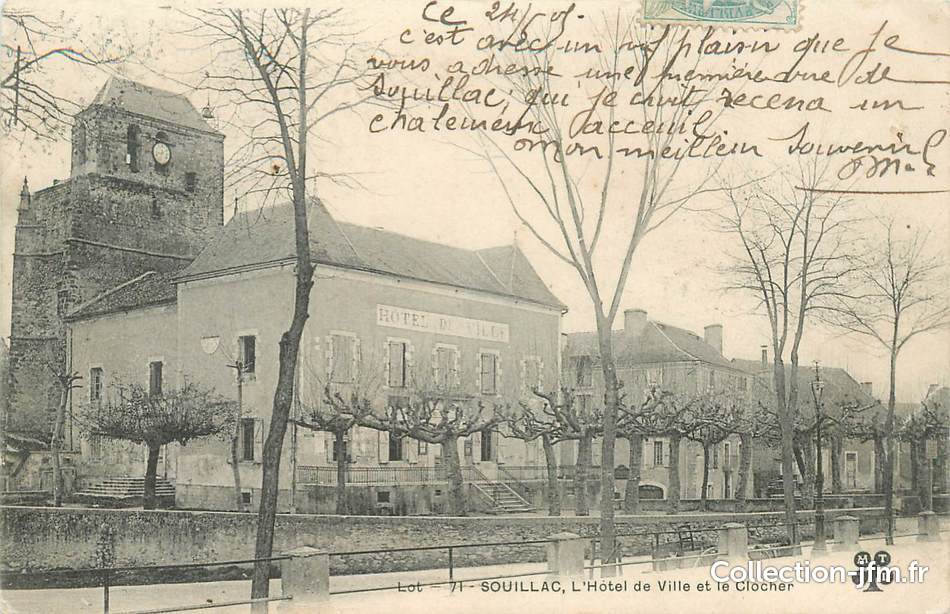 Ce 24/5/05
C'est avec un vif plaisir que Je
vous adresse une première vue de
Souillac, qui Je crois recevra un
chaleureux acceuil
Mon meilleur Souvenir
HÔTEL DE VILLE
Lot - 71 - SOUILLAC, L'Hôtel de Ville et le Clocher
MTIL
Collection-jfm.fr